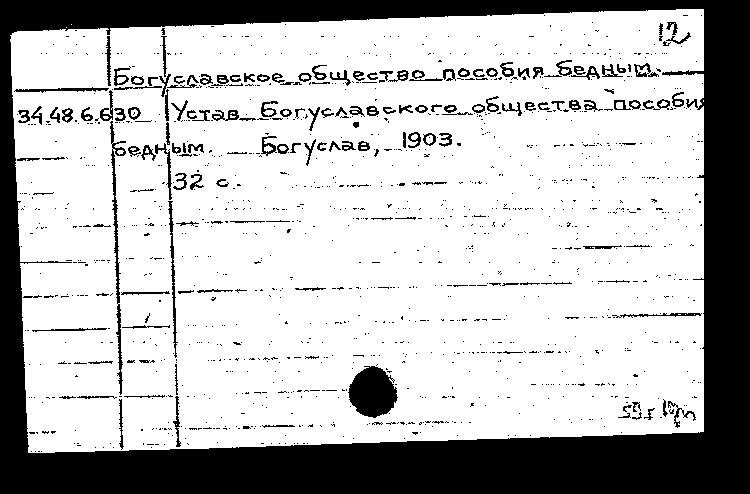 12
Богуславское общество пособия бедным.
34.48.6.630 Устав Богуславского общества пособия
бедным. Богуслав, 1903.
32 с.